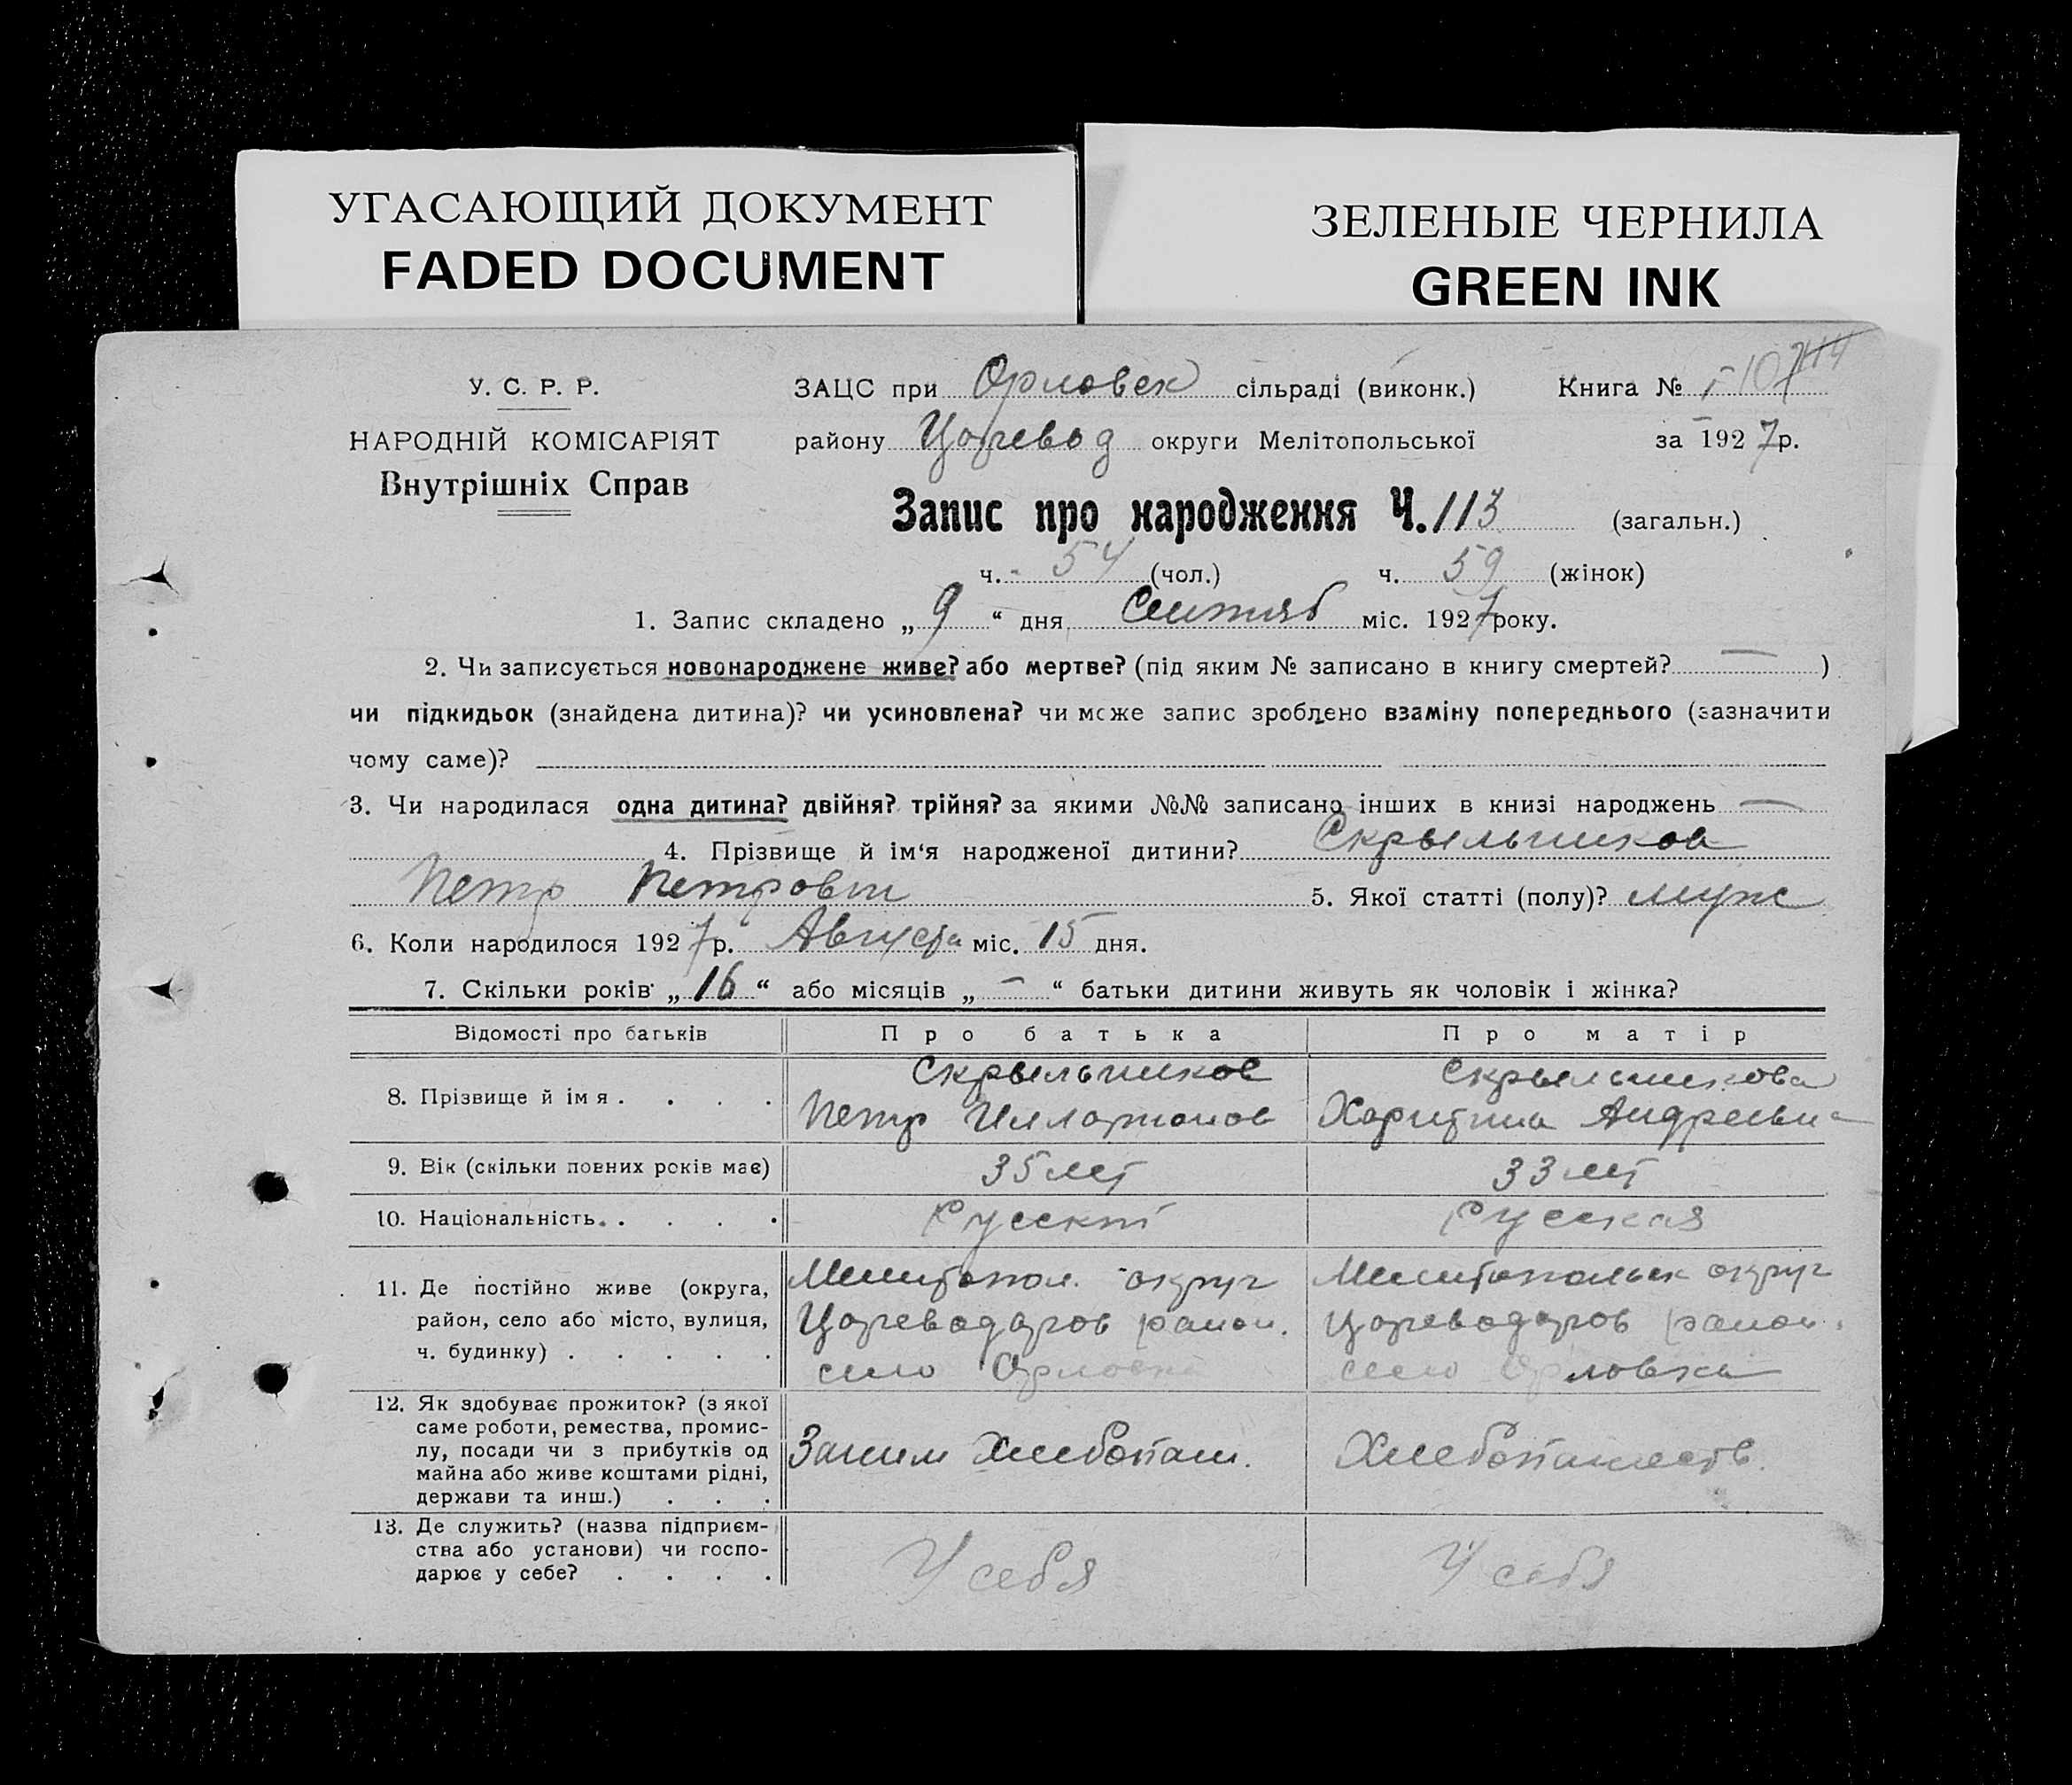 УГАСАЮЩИЙ ДОКУМЕНТ
FADED DOCUMENT
ЗЕЛЕНЫЕ ЧЕРНИЛА
GREEN INK
У. С. Р. Р.
НАРОДНІЙ КОМІСАРІЯТ
Внутрішніх Справ
ЗАЦС при Орловск сільраді (виконк.) Книга №
району Царевод округи Мелітопольської за 1927р.
Запис про народження Ч. 113 (загальн.)
ч. - 54 (чол.) ч. 59 (жінок)
1. Запис складено „ 9 “ дня Сентяб міс. 1927 року.
2. Чи записується новонароджене живе? або мертве? (під яким № записано в книгу смертей? — )
чи підкидьок (знайдена дитина)? чи усиновлена? чи може запис зроблено взаміну попереднього (зазначити
чому саме)?
3. Чи народилася одна дитина? двійня? трійня? за якими №№ записано інших в книзі народжень —
4. Прізвище й ім‘я народженої дитини? Скрыльников
Петр Петрович 5. Якої статті (полу)? муж
6. Коли народилося 1927р. Августа міс. 15 дня.
7. Скільки років „ 16 “ або місяців „ — “ батьки дитини живуть як чоловік і жінка?
Відомості про батьків Про батька Про матір
8. Прізвище й імя . . . . .
Скрыльников
Петр Илларионов
Скрыльникова
Харитина Андреевна
9. Вік (скільки повних років має) 35 лет 33 лет
10. Національність. . . . . Русский Русская
11. Де постійно живе (округа,
район, село або місто, вулиця,
ч. будинку) . . . . .
Мелитопол. округ
Цареводаров район.
село Орловка
Мелитопольск округ
Цареводаров район.
село Орловка
12. Як здобуває прожиток? (з якої
саме роботи, ремества, промис-
лу, посади чи з прибутків од
майна або живе коштами рідні,
держави та инш.) . . .
Заним Хлебопаш.
Хлебопашеств.
13. Де служить? (назва підприєм-
ства або установи) чи госпо-
дарює у себе? . . . .
У себя
У себя